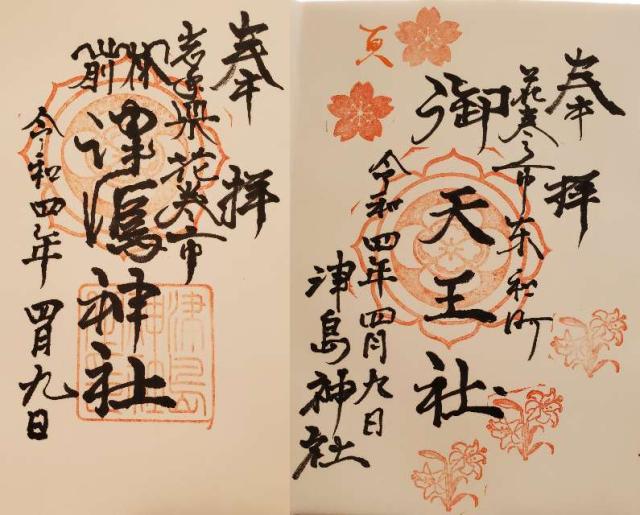 奉拝
岩手県花巻市
津嶋神社
令和四年四月九日
津島
神社
奉拝
花巻市東和町
御天王社
令和四年四月九日
津島神社